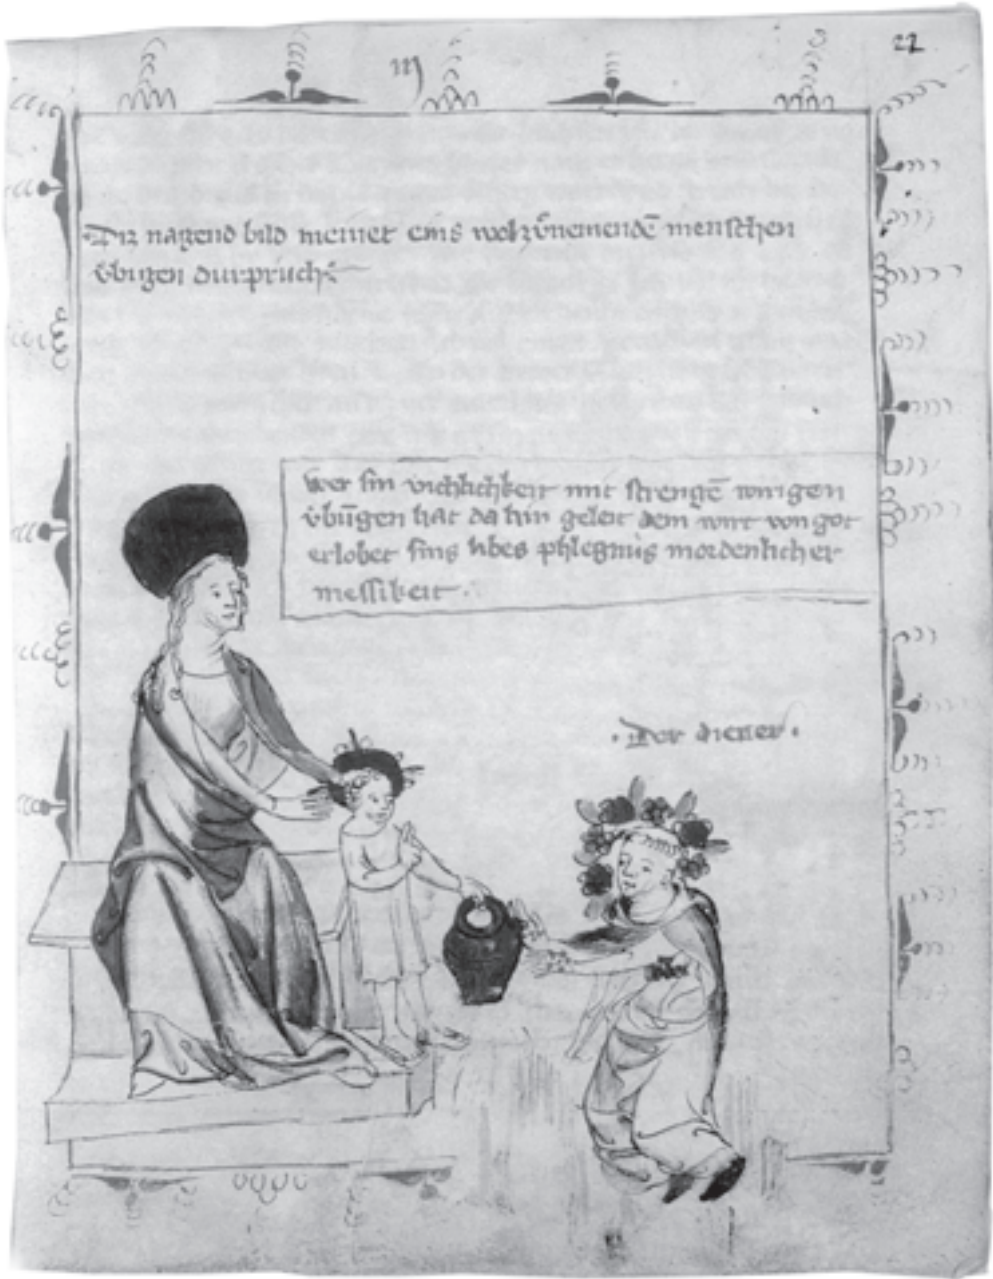 22
Diz nagend bild meinet eins wolzůnemendē menschen
ůbigen durpruch
Wer sin vichlichkeit mit strengē wirigen
ůbūgen hat da hin geleit dem wirt von got
erlobet sins libes phlegnus in ordenlicher
messikeit.
. Der diener .